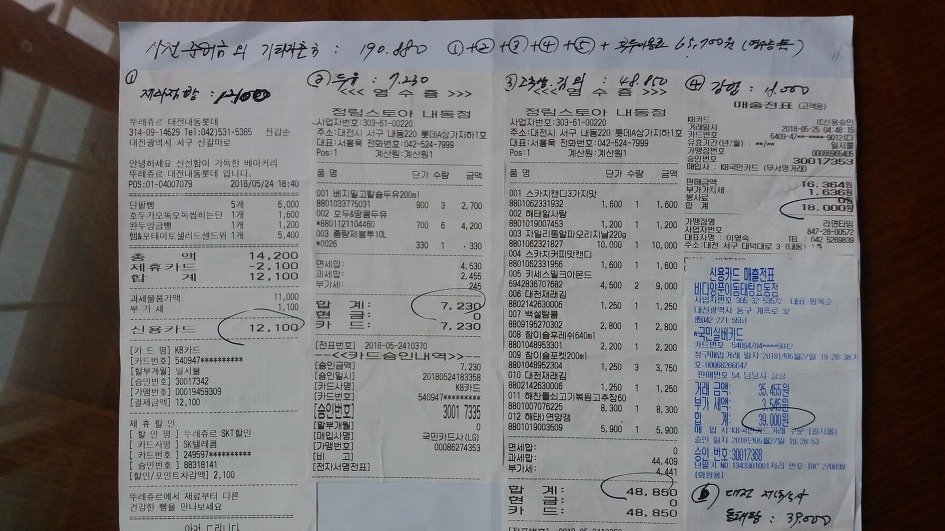 190.880 ①+②+③+④+⑤+
65,700원
①
12,100
뚜레쥬르 대전내동롯데
314-09-14629 Tel:042)531-5385 전갑순
대전광역시 서구 신갈마로
안녕하세요 신선함이 가득한 베이커리
뚜레쥬르 대전내동롯데 입니다.
POS:01-04007079 2018/05/24 18:40
단팥빵 5개 6,000
호두가오독오독씹히는단 1개 1,600
완두앙금빵 1개 1,200
햄&포테이토샐러드샌드위 1개 5,400
총 액 14,200
제휴카드 -2,100
합 계 12,100
과세물품가액 11,000
부 가 세 1,100
신용카드 12,100
[카 드 명] KB카드
[카드번호] 540947**********
[할부개월] 일시불
[승인번호] 30017342
[가맹번호] 00019459309
[결제금액] 12,100
제 휴 할 인
[ 할 인 명 ] 뚜레쥬르 SKT할인
[ 카드사명 ] SK텔레콤
[ 카드번호 ] 249597**********
[ 승인번호 ] 88318141
[할인/포인트차감액] 2,100
뚜레쥬르에서 재료부터 다른
건강한 빵을 만나보세요
② 두유 : 7.230
<<< 영 수 증 >>>
정림스토아 내동점
사업자번호:303-61-00220
주소:대전시 서구 내동220 롯데A상가지하1호
대표:서용욱 전화번호:042-524-7999
Pos:1 계산원:계산원1
품 명 단가 수량 금액
001 베지밀고칼슘두유200ml
8801033775031 900 3 2,700
002 호두&땅콩두유
*8801121104460 700 6 4,200
003 종량제봉투10L
*0026 330 1 330
면세합: 4,530
과세합: 2,455
부가세: 245
합 계: 7,230
현 금: 0
카 드: 7,230
[전표번호] 2018-05-2410370
---<<카드승인내역>>---
[승인금액] 7,230
[승인일시] 20180524183358
[카드사명] KB카드
[카드번호] 540947**********
[승인번호] 3001 7335
[할부개월] 0
[매입사명] 국민카드사(LG)
[가맹번호] 00086274353
[비 고]
[전자서명전표]
③ 48,850
<<< 영 수 증 >>>
정림스토아 내동점
사업자번호:303-61-00220
주소:대전시 서구 내동220 롯데A상가지하1호
대표:서용욱 전화번호:042-524-7999
Pos:1 계산원:계산원1
품 명 단가 수량 금액
001 스카치캔디3가지맛
8801062331932 1,600 1 1,600
002 해태알사탕
8801019007453 1,200 1 1,200
003 자일리톨알파오리지날220g
8801062321827 10,000 1 10,000
004 스카치커피맛캔디
8801062331956 1,600 1 1,600
005 키세스밀크아몬드
6942836707682 4,500 2 9,000
006 대천재래김
8802142630006 1,250 1 1,250
007 백설탕콩
8809195270302 2,800 1 2,800
008 참이슬후레쉬(640ml)
8801048953301 2,200 1 2,200
009 참이슬포켓200ml
8801048952304 1,250 3 3,750
010 대천재래김
8802142630006 1,250 1 1,250
011 해찬들쇠고기볶음고추장60
8801007076225 8,300 1 8,300
012 해태)연양갱
8801019003509 5,900 1 5,900
면세합: 0
과세합: 44,409
부가세: 4,441
합 계: 48,850
현 금: 0
카 드: 48,850
④
매출전표 (고객용)
KB카드 IC신용승인
거래일시 2018-05-25 04:48:15
카드번호 5409-47**-****-9012(C)
유효기간(년/월) : **/** 일시불
가맹점번호 00086965405
승인번호 30017353
매입사 : KB국민카드 (무서명거래)
판매금액 16,364원
부가가치세 1,636원
봉사료 0원
합 계 18,000원
가맹점명 라면타임
사업자번호 847-28-00572
대표자명 : 이영숙 TEL : 042 5269839
주소:대전 서구 대덕대로 3 (내동) 1층
신용카드 매출전표
바다왕푼이동태탕효동점
사업자번호 305 32 53572 대표 왕복순
대전광역시 동구 계족로 32
☎042 271 5551
*국민살버카드
카드번호 54094704****9012
거래일:2018년05월27일 19:28:38
0006826604/
판매번호 54
거래 금액: 35,455원
부가 세액: 3,545원
합 계: 39,000원
승인 일시 2018년05월27일 19:28:53
승인 번호:30017368
[회원용]
39,000